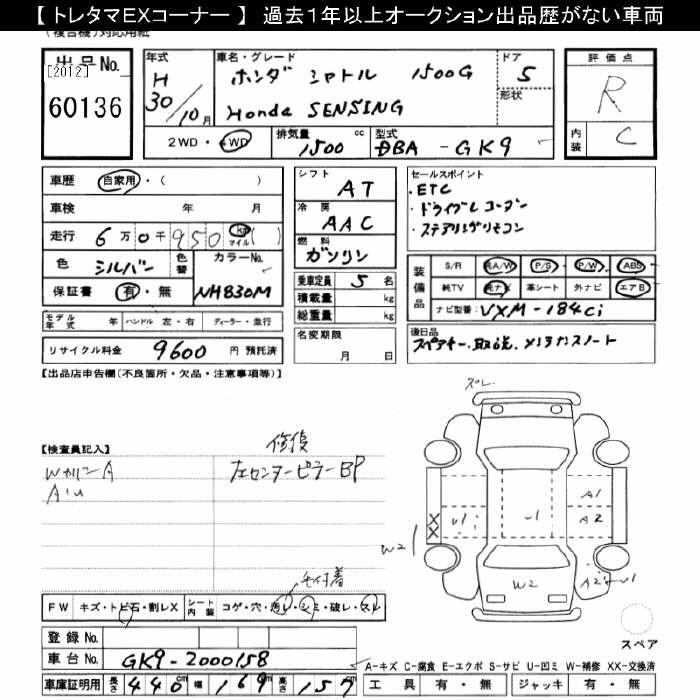 【 トレタマEXコーナー 】 過去1年以上オークション出品歴がない車両
(複合機)対応用紙
出品No.
[2012]
60136
年式
H
30/10月
車名・グレード
ホンダ シャトル 1500G
Honda SENSING
ドア
5
形状
評価点
R
内装
C
2WD・4WD
排気量
1500 cc
型式
DBA-GK9
車歴 自家用・( )
車検 年 月
走行 6万0千950 km マイル ( )
色 シルバー 色替 カラーNo.
保証書 有・無 NH830M
モデル年式 年 ハンドル 左・右 ディーラー・並行
リサイクル料金 9600 円 預託済
シフト
AT
冷房
AAC
燃料
ガソリン
乗車定員 5 名
積載量 kg
総重量 kg
名変期限
月 日
セールスポイント
・ETC
・ドライブレコーダー
・ステアリングリモコン
装備品
S/R A/W P/S P/W ABS
純TV 純ナビ 革シート 外ナビ エアB
ナビ型番: VXM-184ci
後日品
スペアキー、取説、メンテナンスノート
【出品店申告欄(不良箇所・欠品・注意事項等)】
【検査員記入】
修復
左センターピラーBP
ズレ
A1
A2
U1
U1
W2
W2
毛付着
FW キズ・トビ石・割レX シート内装 コゲ・穴・汚レ・シミ・破レ・スレ
登録No.
車台No. GK9-2000158
車庫証明用 長さ 440cm 幅 169cm 高さ 157cm
スペア
A-キズ C-腐食 E-エクボ S-サビ U-凹ミ W-補修 XX-交換済
工具 有・無 ジャッキ 有・無